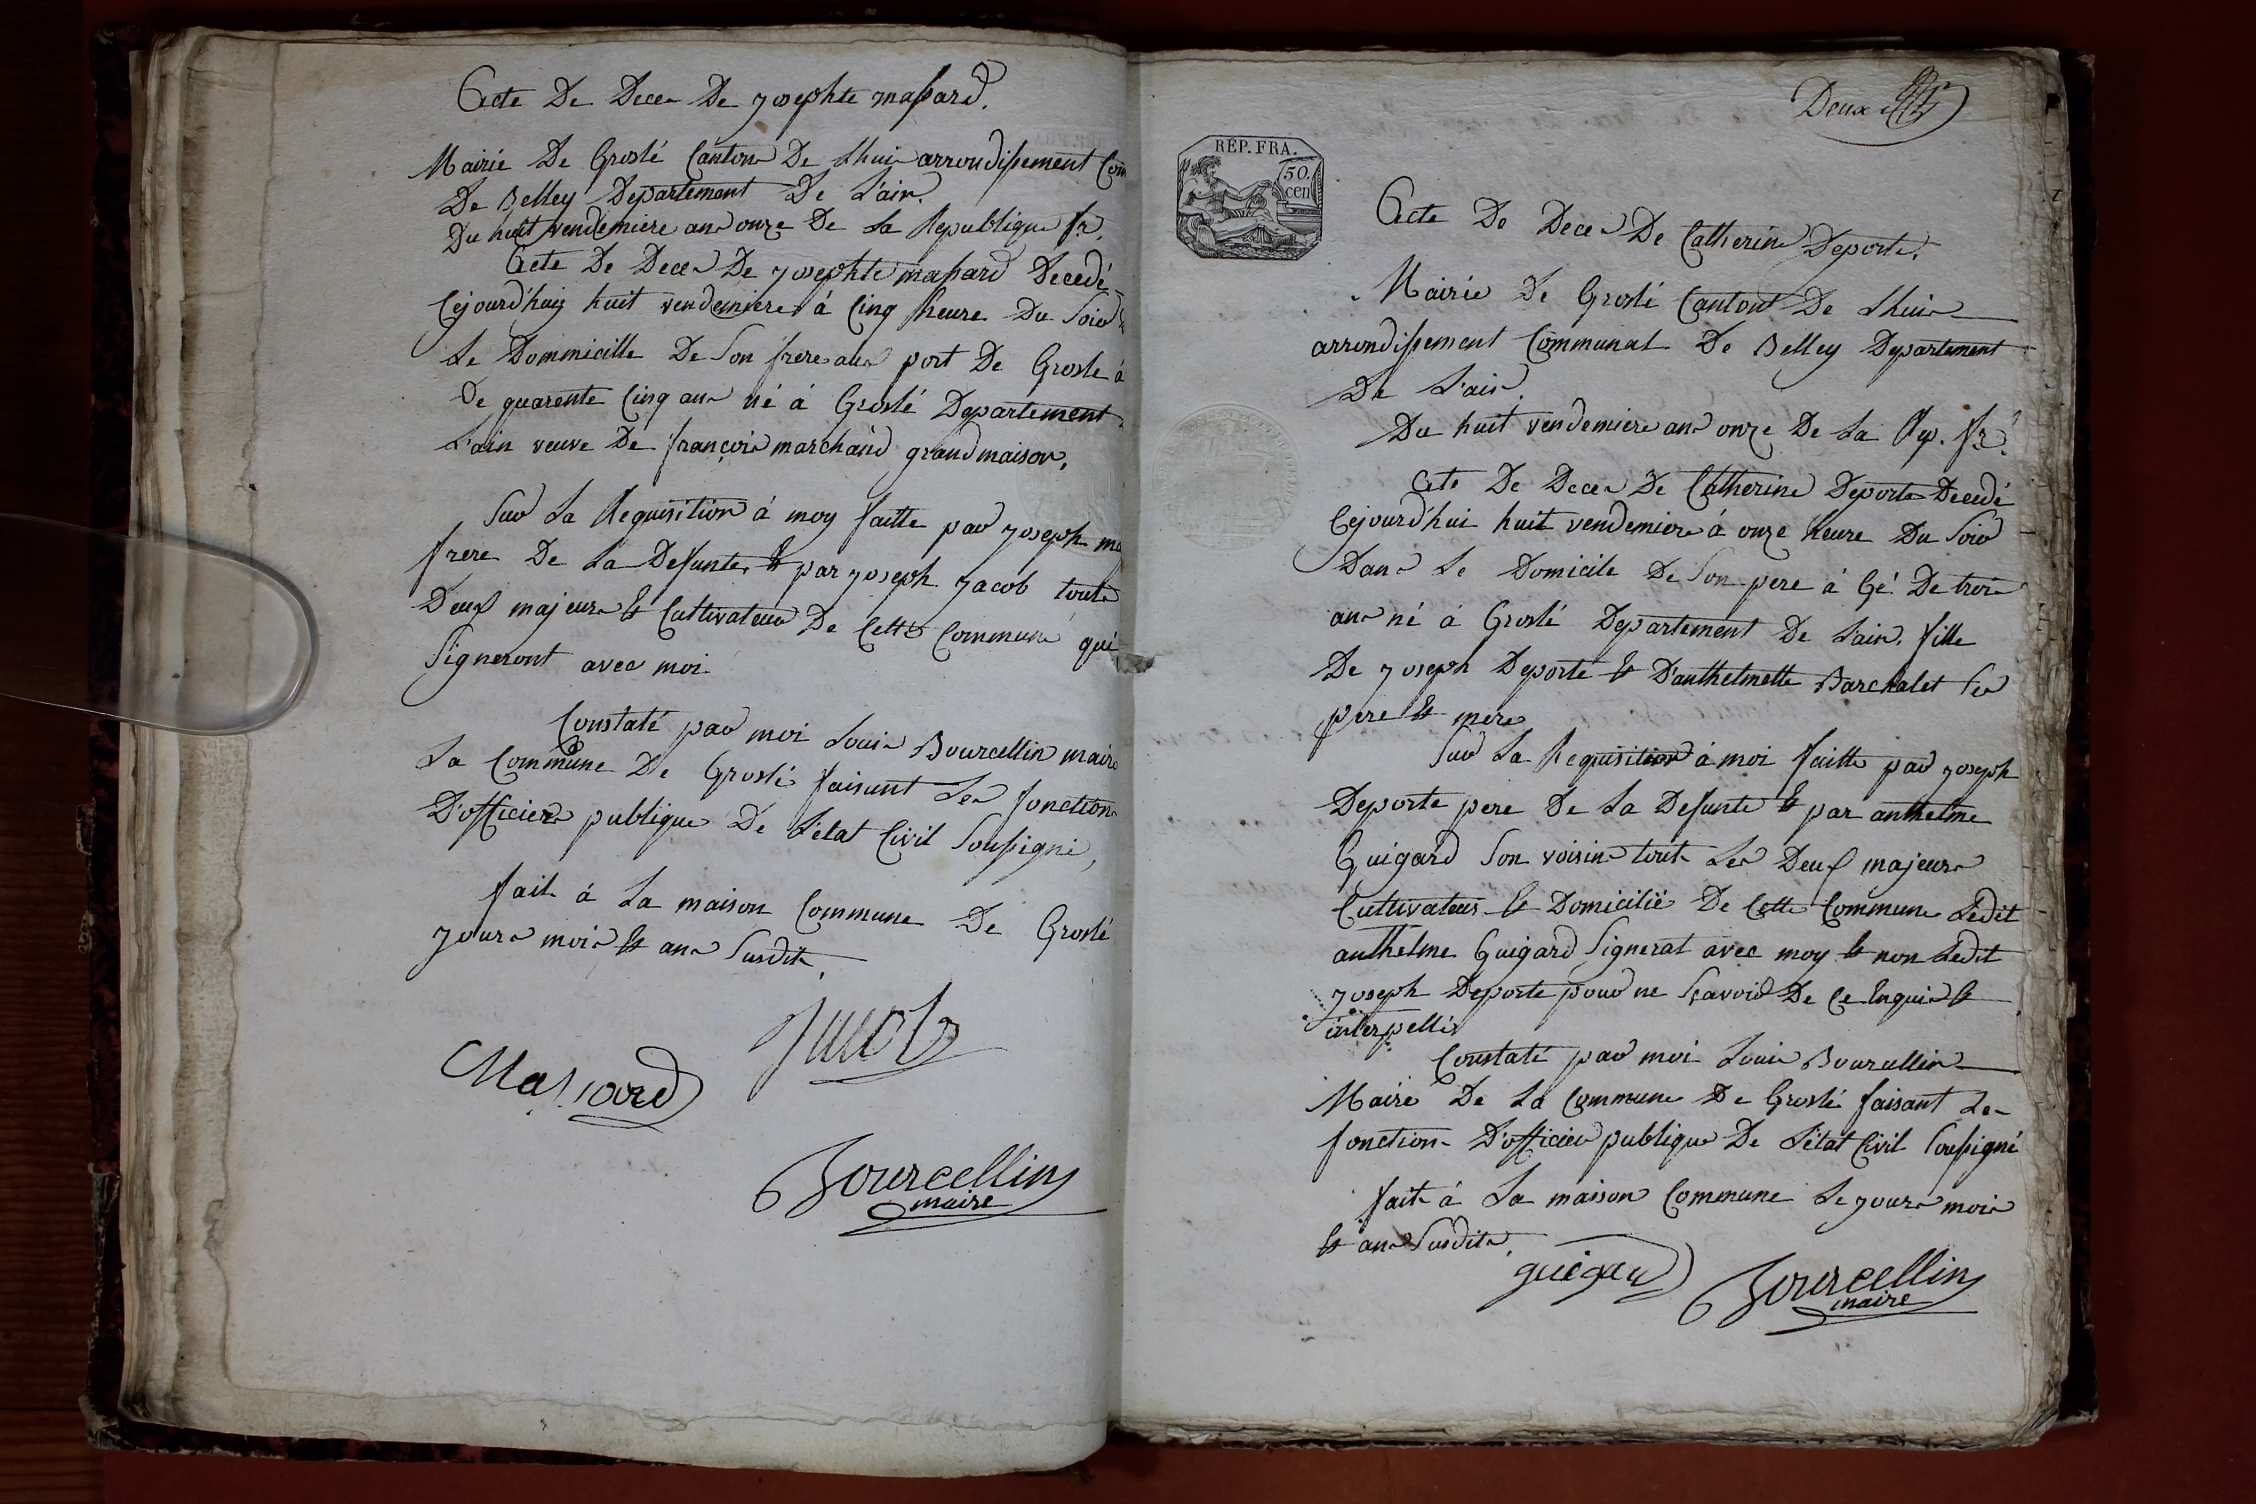 Acte De Deces De josephte massard.
Mairie De Groslé Canton De Lhuis arrondissement Com
De Belley Departement De L'ain.
Du huit vendemiere ans onze De La Republique fr.
Acte De Deces De josephte massard Decedé
Cejourd'huiz huit vendemiere á Cinq heure Du Soir
Le Dommicille De Son frere aux port De Grosle á
De quarente Cinq ans né á Groslé Departement
L'ain veuve De françois marchand grandmaison,
Sur La Requisition á moy faitte par joseph ma
frere De La Defunte & par joseph jacob touts
Deux majeurs & Cultivateur De Cette Commune qui
Signeront avec moi
Constaté par moi Louis Bourcellin maire
La Commune De Groslé faisant Les fonctions
D'officiers publique De L'état Civil Soussigné,
fait á La maison Commune De Groslé
jours mois & ans Susdits,
Jacob
Massard
Bourcellin
maire
Deux
RÉP. FRA.
50.
cen
Acte De Deces De Catherine Deporte.
Mairie De Groslé Canton De Lhuis
arrondissement Communal De Belley Departement
De L'ain.
Du huit vendemiere ans onze De La Rp. fr.
Acte De Deces De Catherine Deporte Decedé
Cejourd'hui huit vendemiere á onze heure Du Soir
Dans Le Domicile De Son pere á Gé De trois
ans né á Groslé Departement De L'ain, fille
De joseph Deporte & D'anthelmette Barchalet Ses
pere & mere
Sur La Requisition á moi faitte par joseph
Deporte pere De La Defunte & par anthelme
Guigard Son voisins touts Les Deux majeurs
Cultivateurs & Domicilié De Cette Commune Ledit
anthelme Guigard Signerat avec moy & non Ledit
joseph Deporte pour ne Sçavoir De Ce Enquis &
interpellé
Constaté par moi Louis Bourcellin
Maire De La Commune De Groslé faisant Les
fonctions D'officier publique De L'état Civil Soussigné
fait á La maison Commune Le jours mois
& ans Susdits,
guigard
Bourcellin
maire